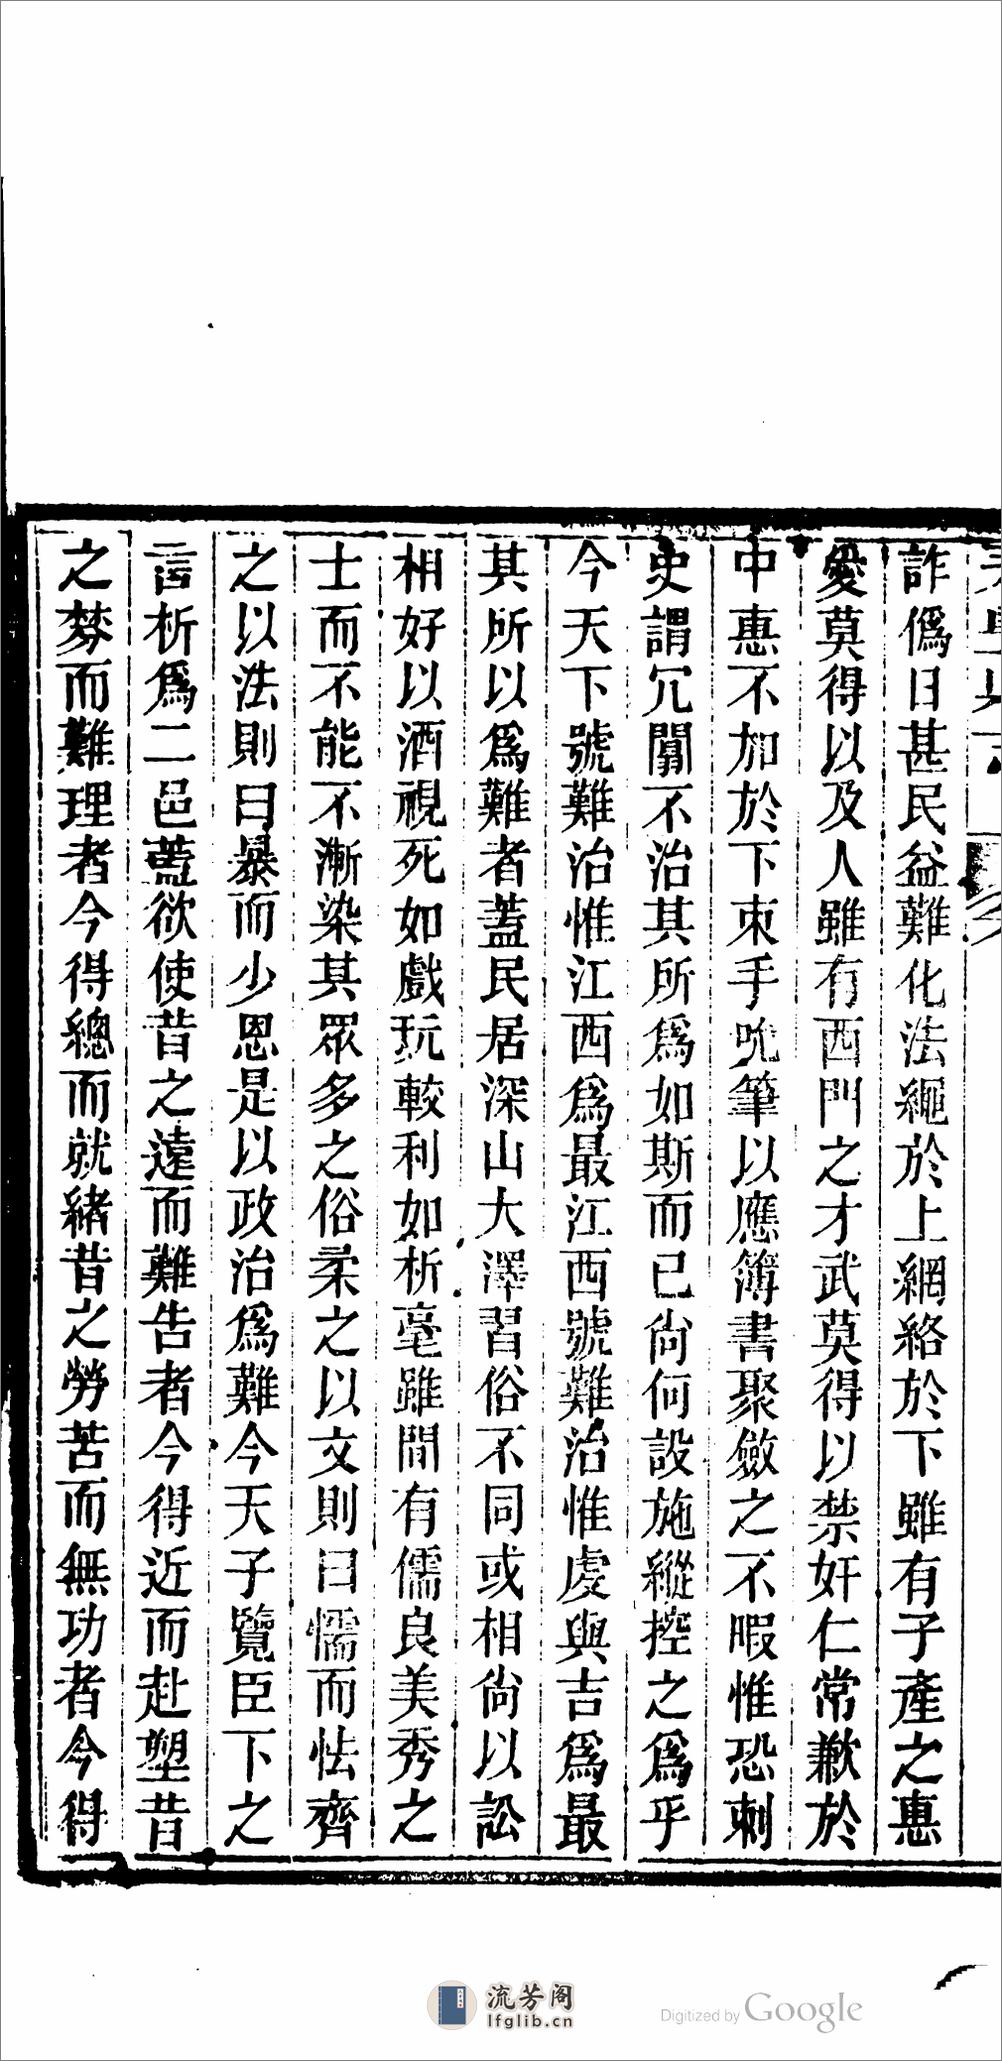 詐僞日甚民益難化法繩於上網絡於下雖有子產之惠
愛莫得以及人雖有西門之才武莫得以禁奸仁常歉於
中惠不加於下束手吮筆以應簿書聚斂之不暇惟恐刺
史謂冗闒不治其所爲如斯而已尙何設施縱控之爲乎
今天下號難治惟江西爲最江西號難治惟虔與吉爲最
其所以爲難者蓋民居深山大澤習俗不同或相尙以訟
相好以酒視死如戲玩較利如析毫雖間有儒良美秀之
士而不能不漸染其眾多之俗柔之以文則曰懦而怯齊
之以法則曰暴而少恩是以政治爲難今天子覽臣下之
言析爲二邑葢欲使昔之遠而難告者今得近而赴塑昔
之棼而難理者今得總而就緒昔之勞苦而無功者今得
流芳阁
lfglib.cn
Digitized by Google